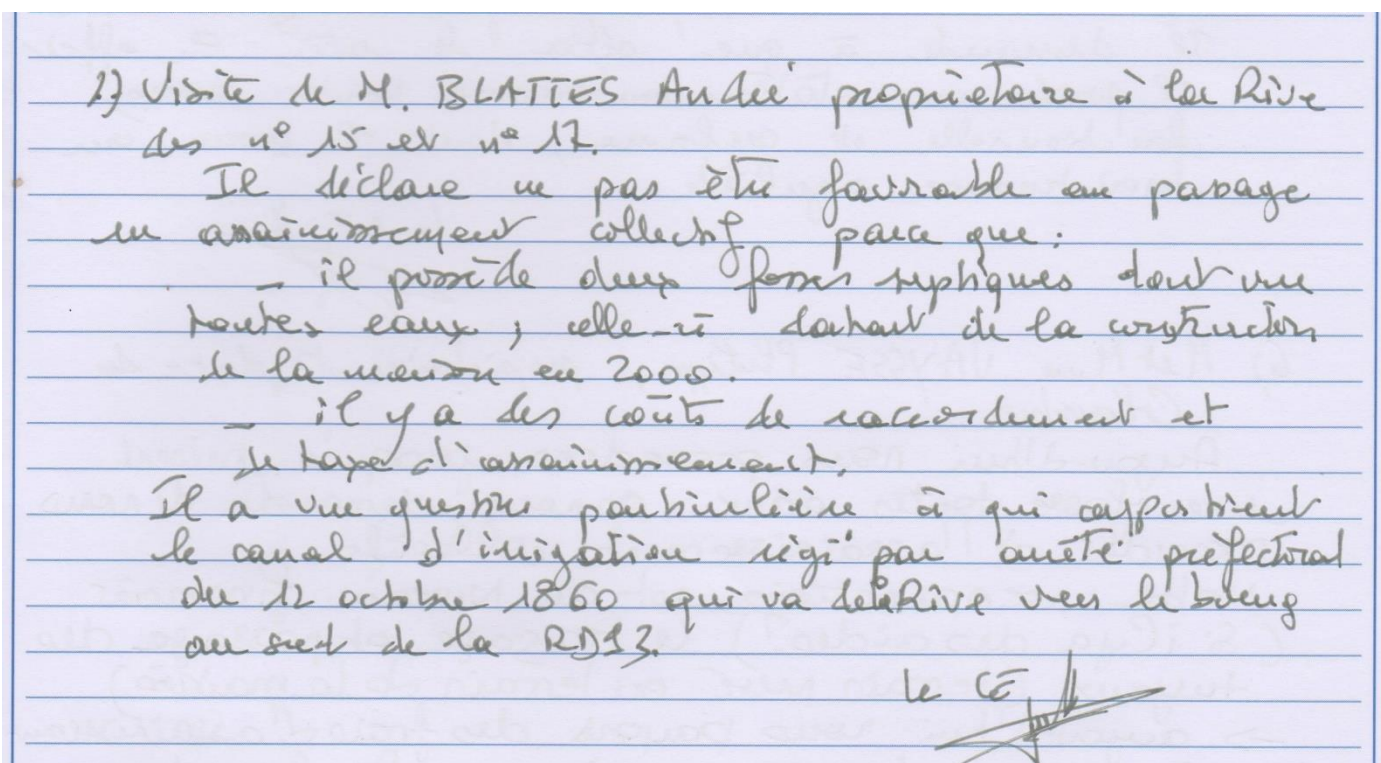 1) Visite de M. BLATTES André propriétaire à la Rive
des n° 15 et n° 17.
Il déclare ne pas être favorable au passage
en assainissement collectif parce que :
_ il possède deux fosses septiques dont une
toutes eaux ; celle-ci datant de la construction
de la maison en 2000.
_ il y a des coûts de raccordement et
de taxe d'assainissement.
Il a une question particulière à qui appartient
le canal d'irrigation régi par arrêté préfectoral
du 12 octobre 1860 qui va de la Rive vers le bourg
au sud de la RD13.
le CE